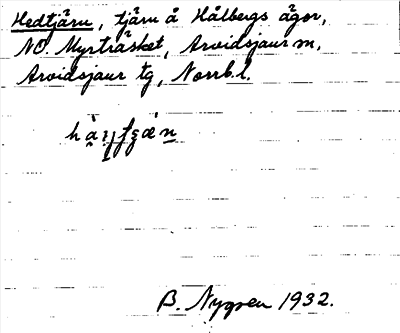 Hedtjärn, tjärn å Hålbergs ägor,
NO. Myrträsket, Arvidsjaur sn,
Arvidsjaur tg, Norrb.l.
B. Nygren 1932.